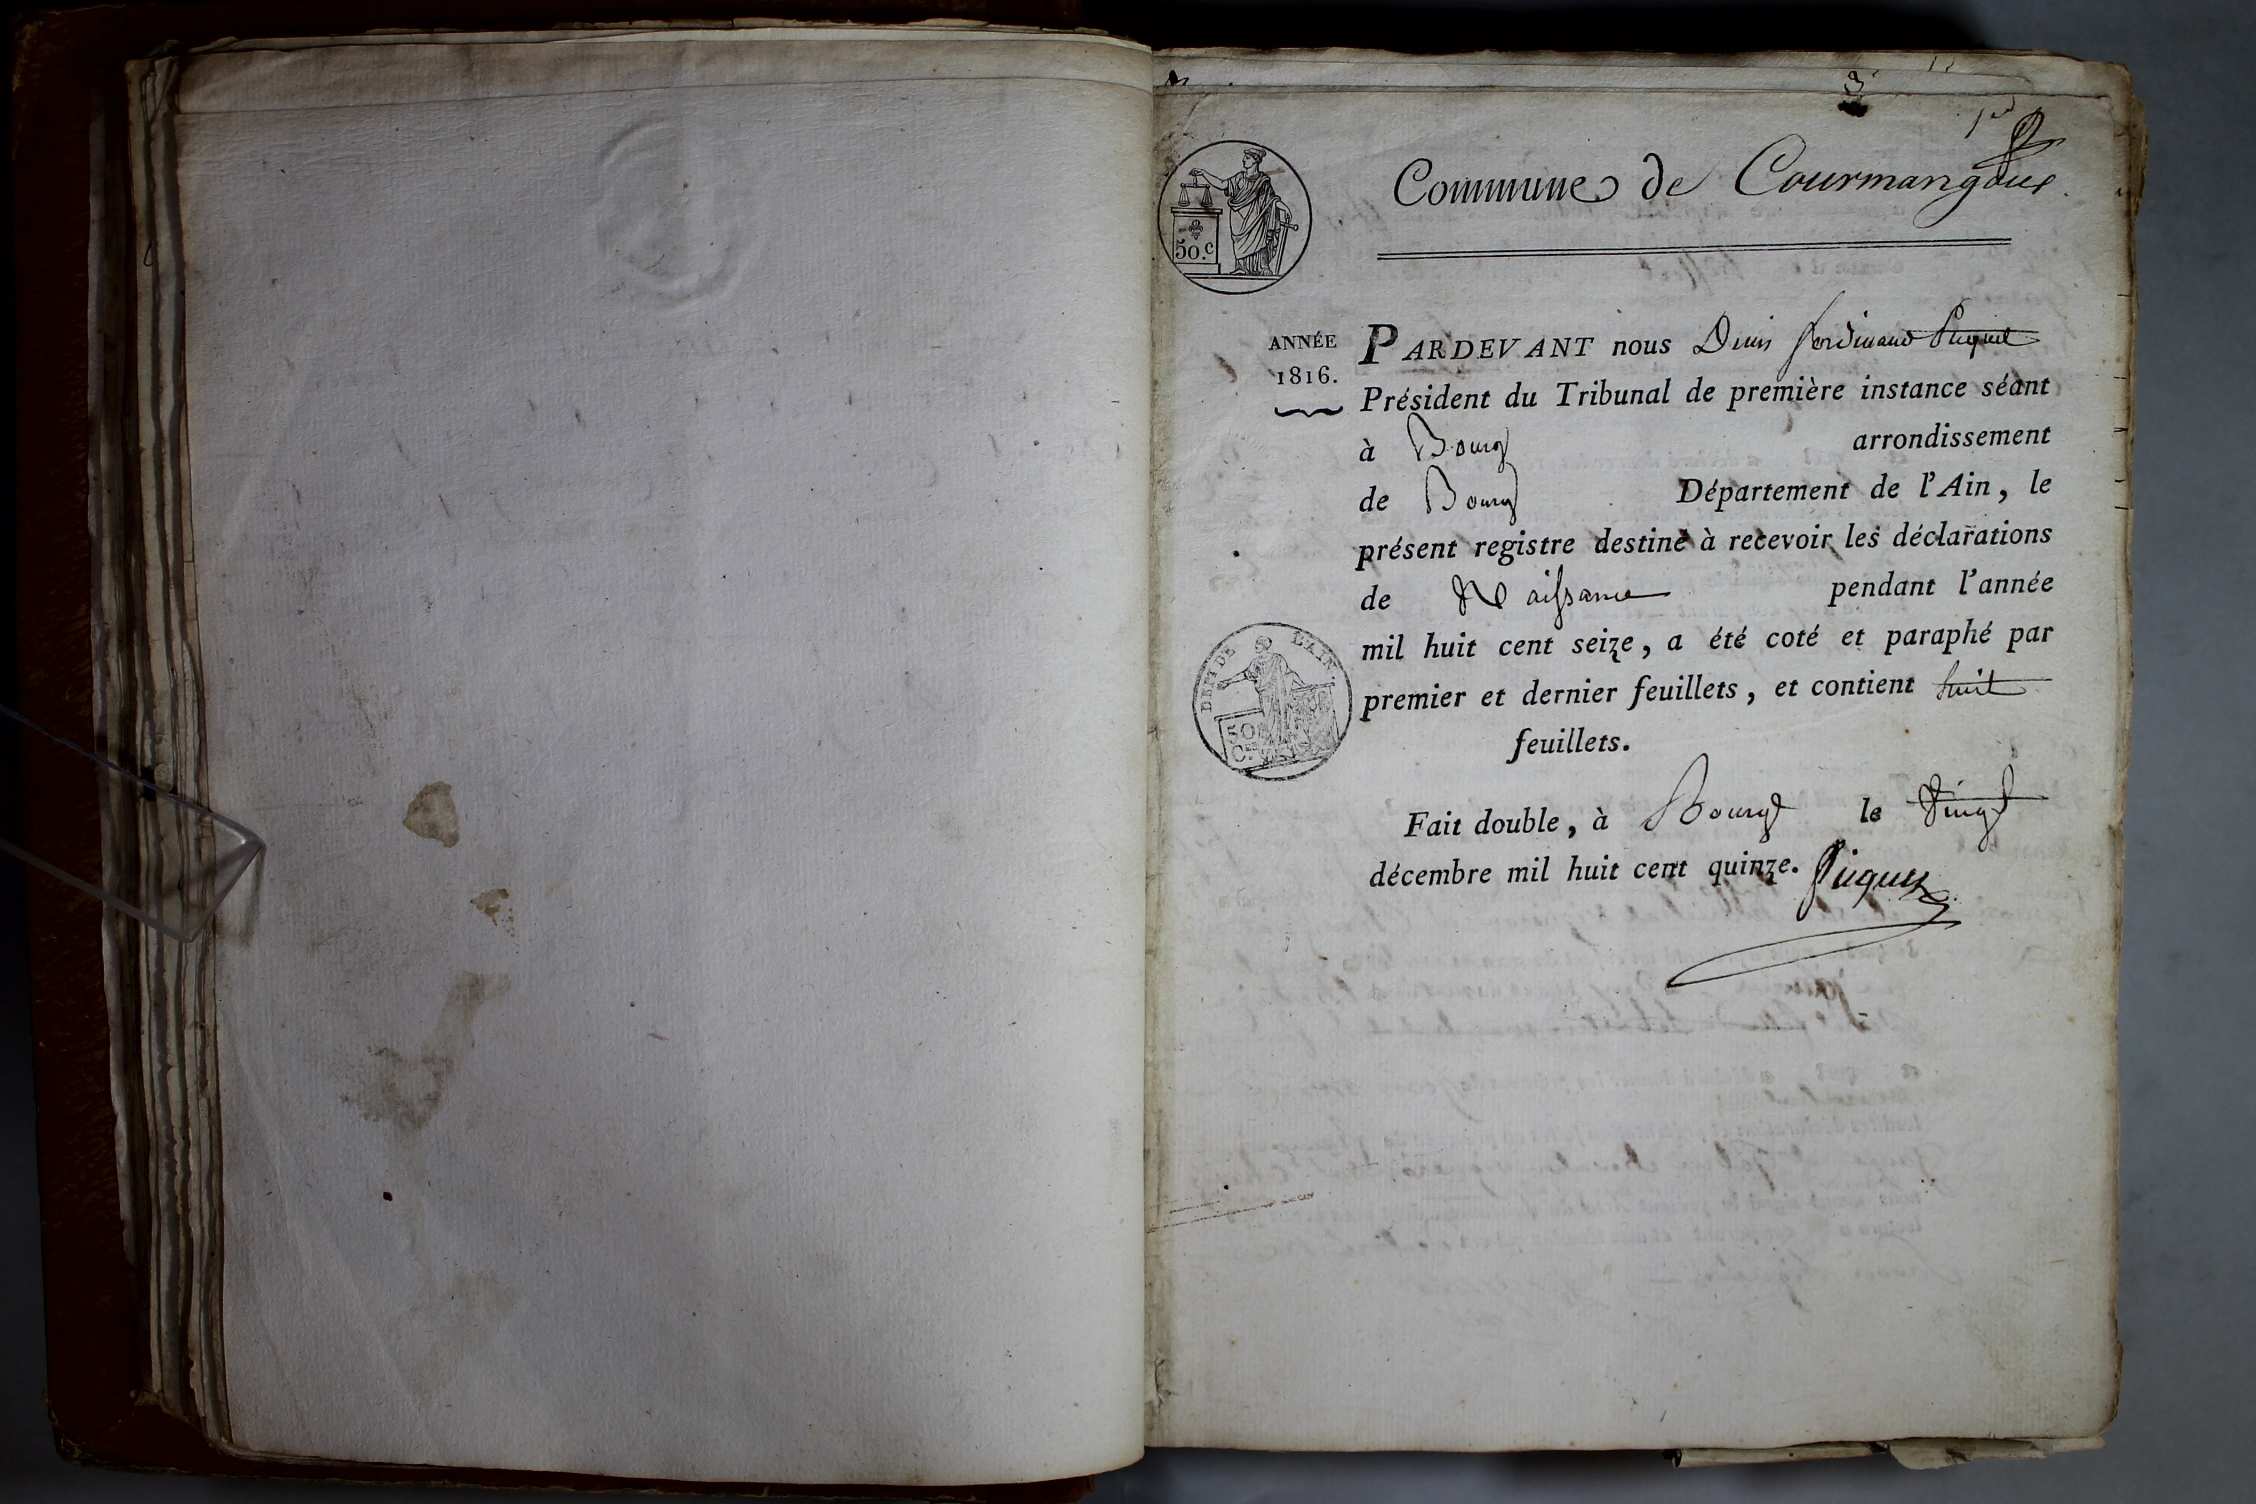 3
1er
Commune de Courmangoux
50.c
ANNÉE
1816.
PARDEVANT nous Denis ferdinand Piquet
Président du Tribunal de première instance séant
à Bourg arrondissement
de Bourg Département de l'Ain, le
présent registre destiné à recevoir les déclarations
de Naissance pendant l'année
mil huit cent seize, a été coté et paraphé par
premier et dernier feuillets, et contient huit
feuillets.
DEPT DE L'AIN.
50
Fait double, à Bourg le Vingt
décembre mil huit cent quinze. Piquet